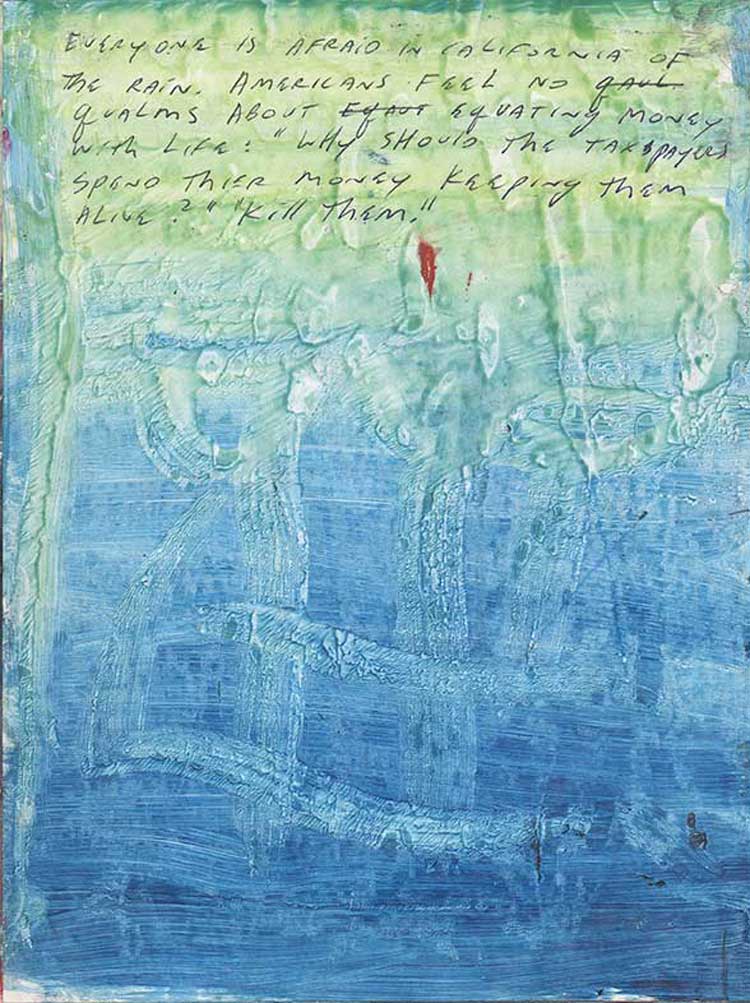 EVERYONE IS AFRAID IN CALIFORNIA OF
THE RAIN. AMERICANS FEEL NO QAUL
QUALMS ABOUT EQAUT EQUATING MONEY
WITH LIFE: "WHY SHOULD THE TAXPAYERS
SPEND THIER MONEY KEEPING THEM
ALIVE?" "KILL THEM."